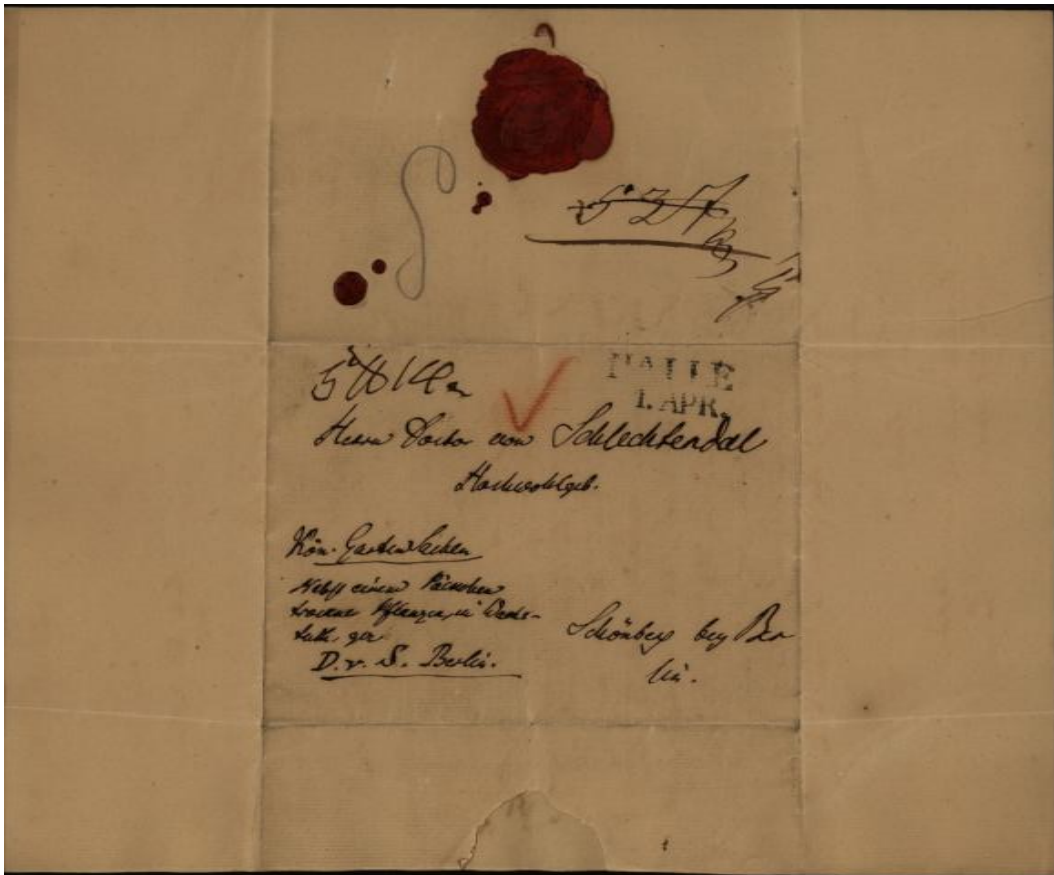 HALLE
1. APR.
Herrn Doctor von Schlechtendal
Hochwohlgeb.
Kön. Garten Sachen
Nebst einem Päckchen
trockner Pflanzen, in Wachs-
tuch, gez
D. v. S. Berlin.
Schönberg bey Ber
lin.